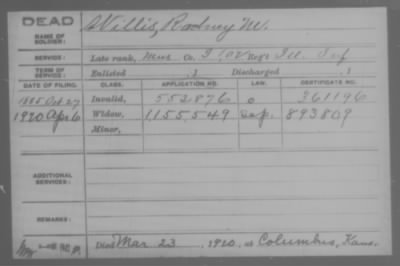 DEAD
NAME OF SOLDIER: Willis, Rodney M.
SERVICE: Late rank, Co. I, 102 Reg't Ill. Inf
TERM OF SERVICE: Enlisted , 1 Discharged , 1
DATE OF FILING. CLASS. APPLICATION NO. LAW. CERTIFICATE NO.
1885 Oct 27 Invalid, 552876 361196
1920 Ap 6 Widow, 1155549 893809
Minor,
ADDITIONAL SERVICES:
REMARKS:
Died Mar. 23, 1920, at Columbus, Kans.